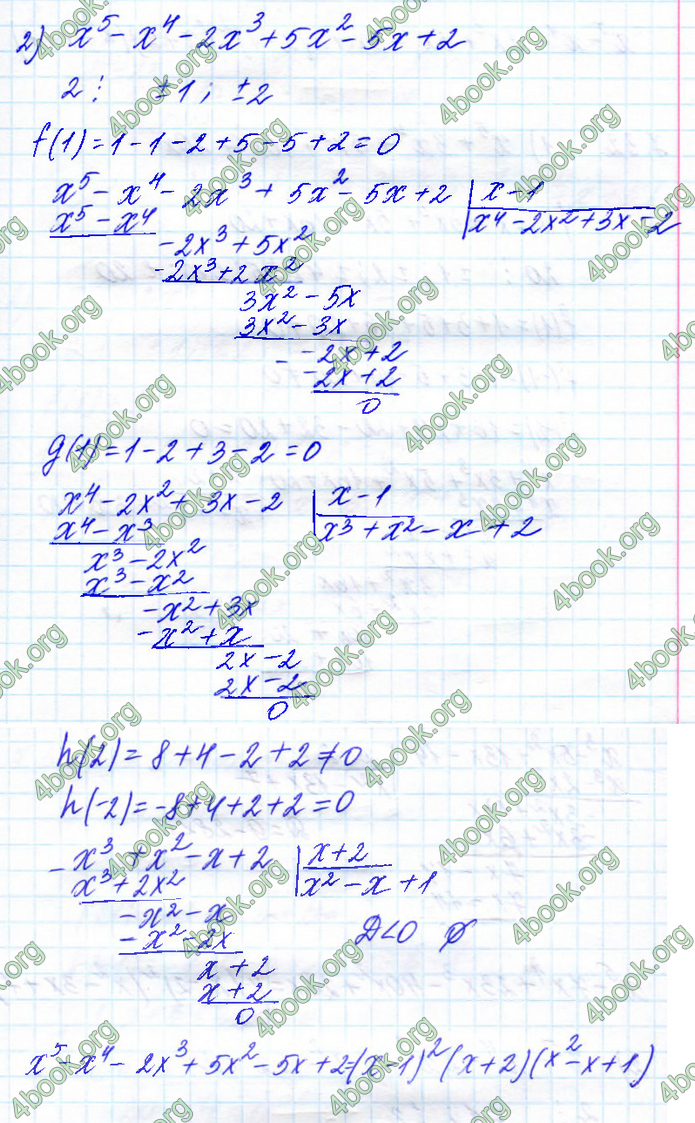 2) x⁵ - x⁴ - 2x³ + 5x² - 5x + 2
2 ⋮ ±1; ±2
f(1) = 1 - 1 - 2 + 5 - 5 + 2 = 0
x⁵ - x⁴ - 2x³ + 5x² - 5x + 2 | x - 1
x⁵ - x⁴ | x⁴ - 2x² + 3x - 2
- 2x³ + 5x²
- 2x³ + 2x²
3x² - 5x
3x² - 3x
- - 2x + 2
- 2x + 2
0
g(1) = 1 - 2 + 3 - 2 = 0
x⁴ - 2x² + 3x - 2 | x - 1
x⁴ - x³ | x³ + x² - x + 2
x³ - 2x²
x³ - x²
- x² + 3x
- x² + x
2x - 2
2x - 2
0
h(2) = 8 + 4 - 2 + 2 ≠ 0
h(-2) = -8 + 4 + 2 + 2 = 0
- x³ + x² - x + 2 | x + 2
x³ + 2x² | x² - x + 1
- x² - x
- x² - 2x D<0 ∅
x + 2
x + 2
0
x⁵ - x⁴ - 2x³ + 5x² - 5x + 2 = (x - 1)² (x + 2) (x² - x + 1)
4book.org